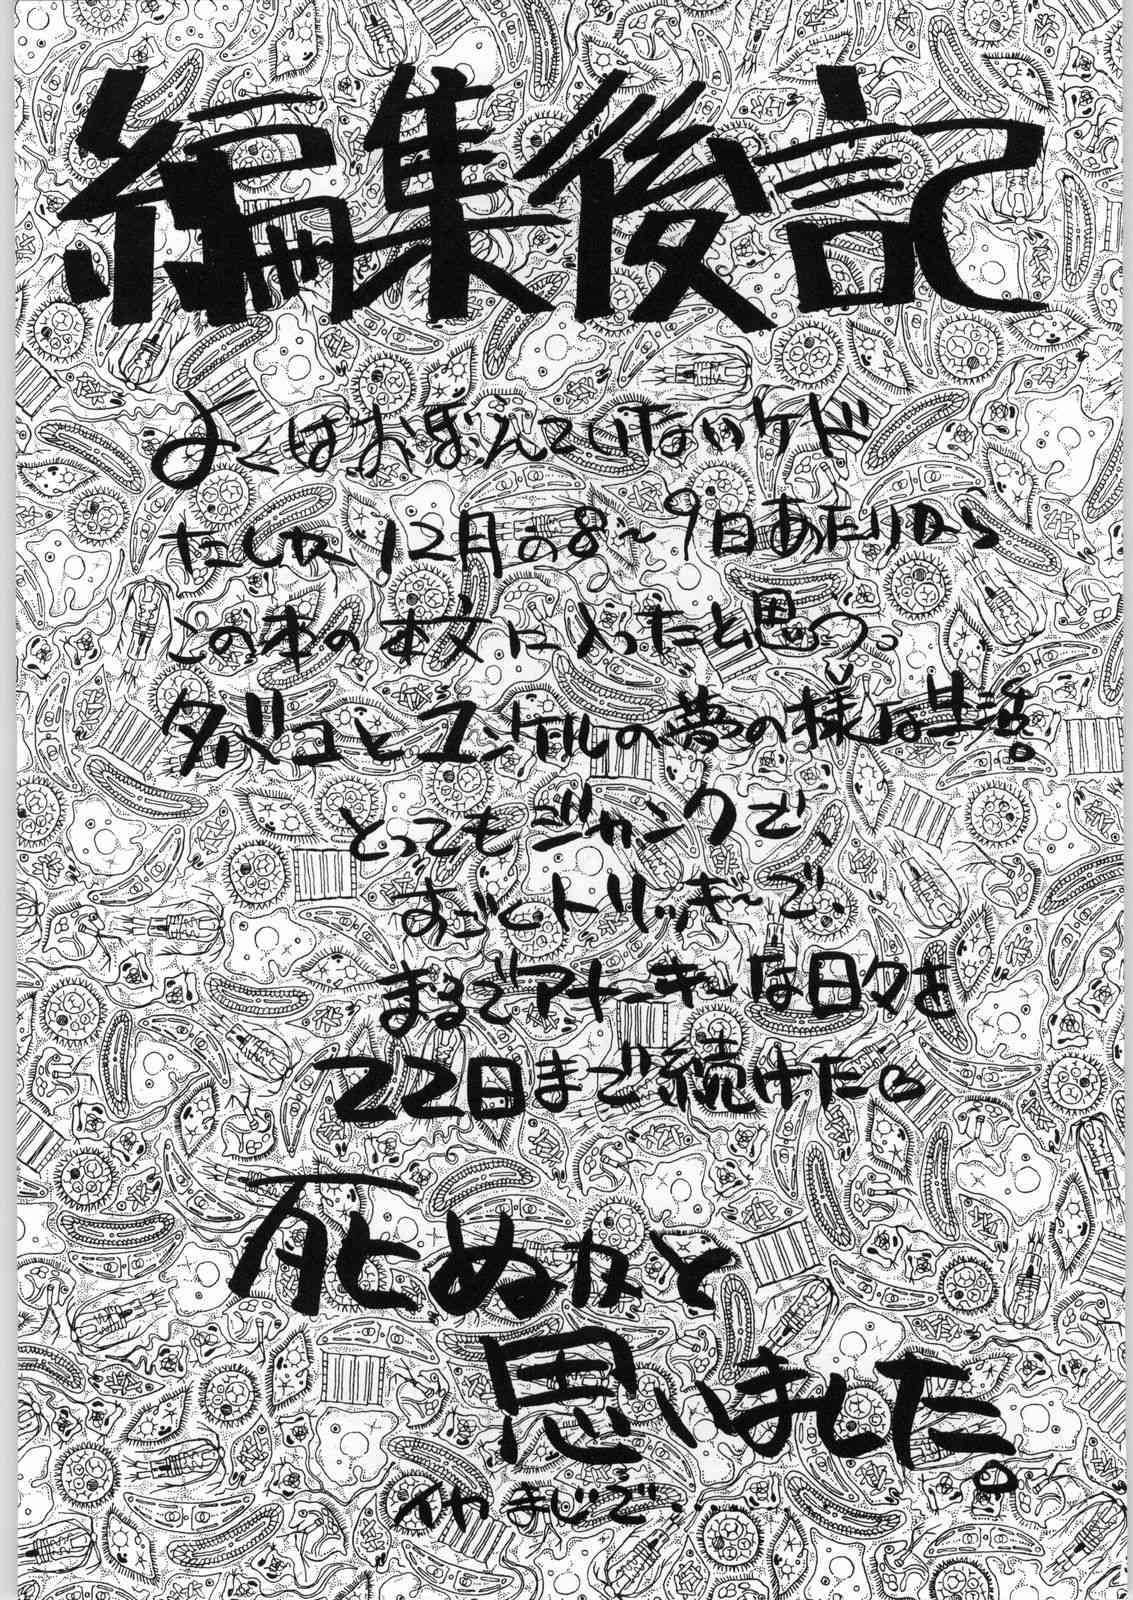 編集後記
よくはおぼえていないケド
たしか12月の8〜9日あたりから
この本の本文に入ったと思う。
タバコとユンケルの夢の様な生活。
とってもジャンクで、
すごくトリッキーで、
まるでアナーキーな日々を
22日まで続けた。
死ぬかと
思いました。
イヤまじで…